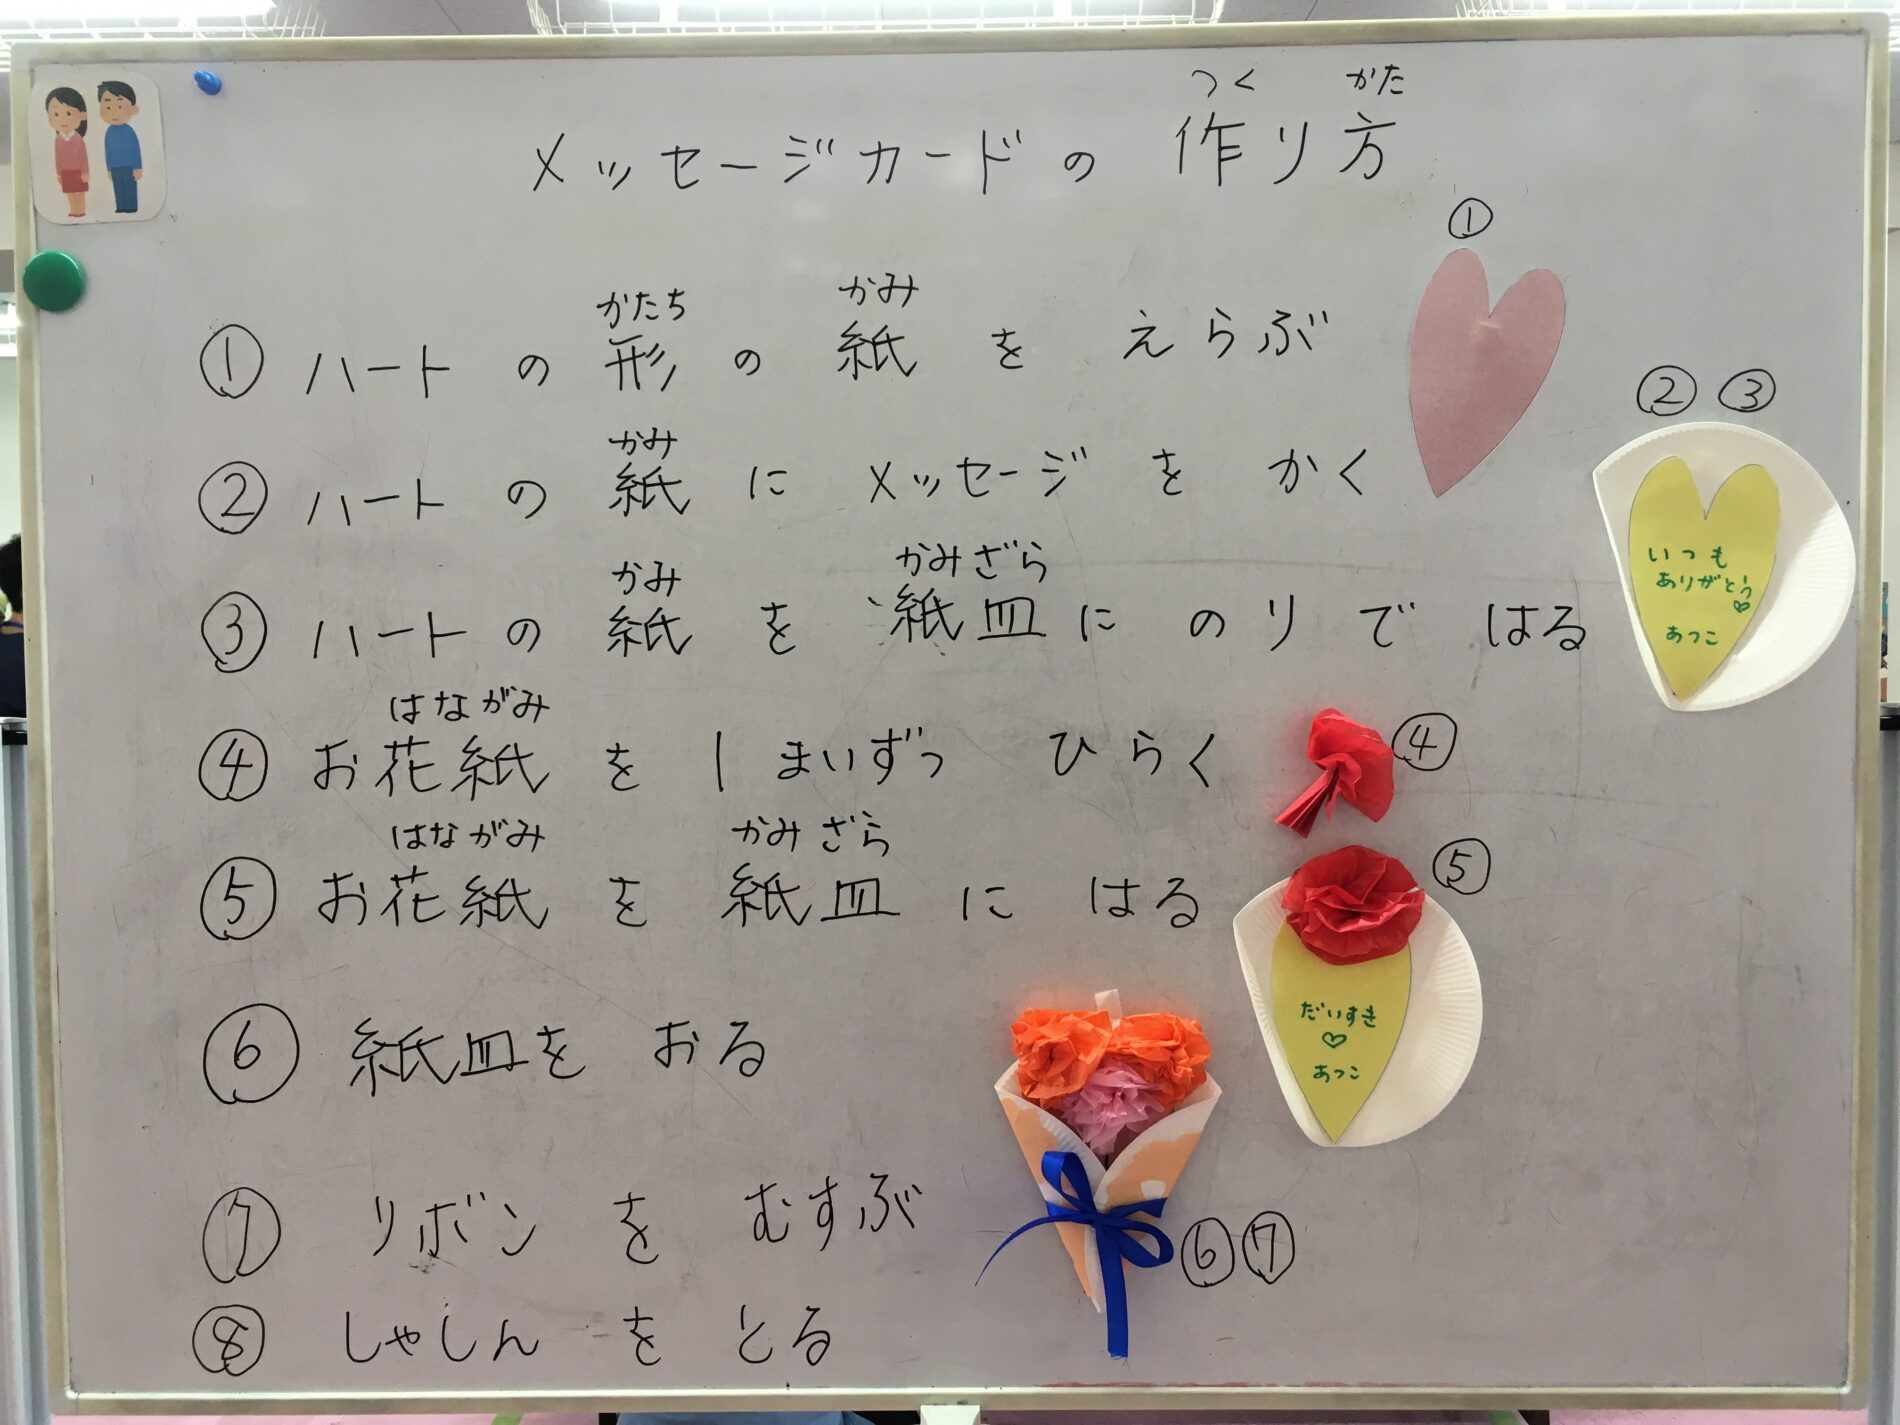 つく かた
メッセージカードの作り方
①
かたち かみ
① ハートの形の紙をえらぶ
② ③
かみ
② ハートの紙にメッセージをかく
かみ かみざら
③ ハートの紙を紙皿にのりではる
いつも
ありがとう♡
あつこ
はながみ
④ お花紙を1まいずつひらく
④
はながみ かみざら
⑤ お花紙を紙皿にはる
⑤
だいすき
♡
あつこ
⑥ 紙皿をおる
⑦ リボンをむすぶ
⑥⑦
⑧ しゃしんをとる